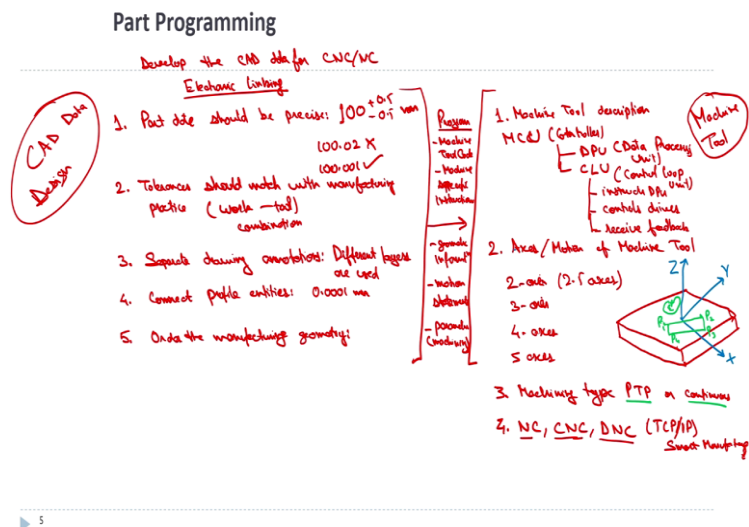 Part Programming
Develop the CAD data for CNC/NC
Electronic Linking
CAD Data
Design
1. Part data should be precise: 100 +0.5 -0.5 mm
100.02 X
100.001 ✓
2. Tolerances should match with manufacturing
practice (work - tool)
combination
3. Separate drawing annotations: Different layers
are used
4. Connect profile entities: 0.0001 mm
5. Order the manufacturing geometry:
Program
- Machine
Tool Code
- Machine
specific
Instruction
- geometric
Inform
- motion
statement
- parameter
(machining)
1. Machine Tool description
MCU (Controller)
DPU (Data Processing
Unit)
CLU (Control loop
Unit)
- instruct DPU
- controls drives
- receive feedback
Machine
Tool
2. Axes/Motion of Machine Tool
2-axis (2.5 axes)
3-axis
4-axes
5 axes
Z
Y
X
P1
P2
P3
P4
3. Machining type PTP or continuous
4. NC, CNC, DNC (TCP/IP)
Smart Manufacturing
5